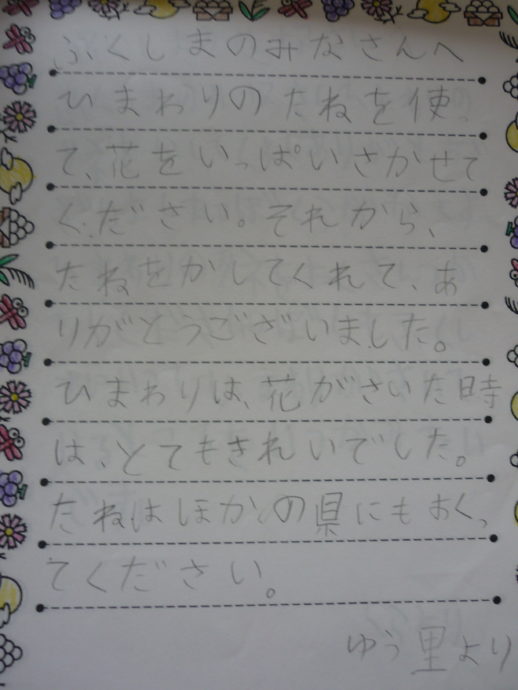 ふくしまのみなさんへ
ひまわりのたねを使っ
て、花をいっぱいさかせて
ください。それから、
たねをかしてくれて、あ
りがとうございました。
ひまわりは、花がさいた時
は、とてもきれいでした。
たねはほかの県にもおくっ
てください。
ゆう里より